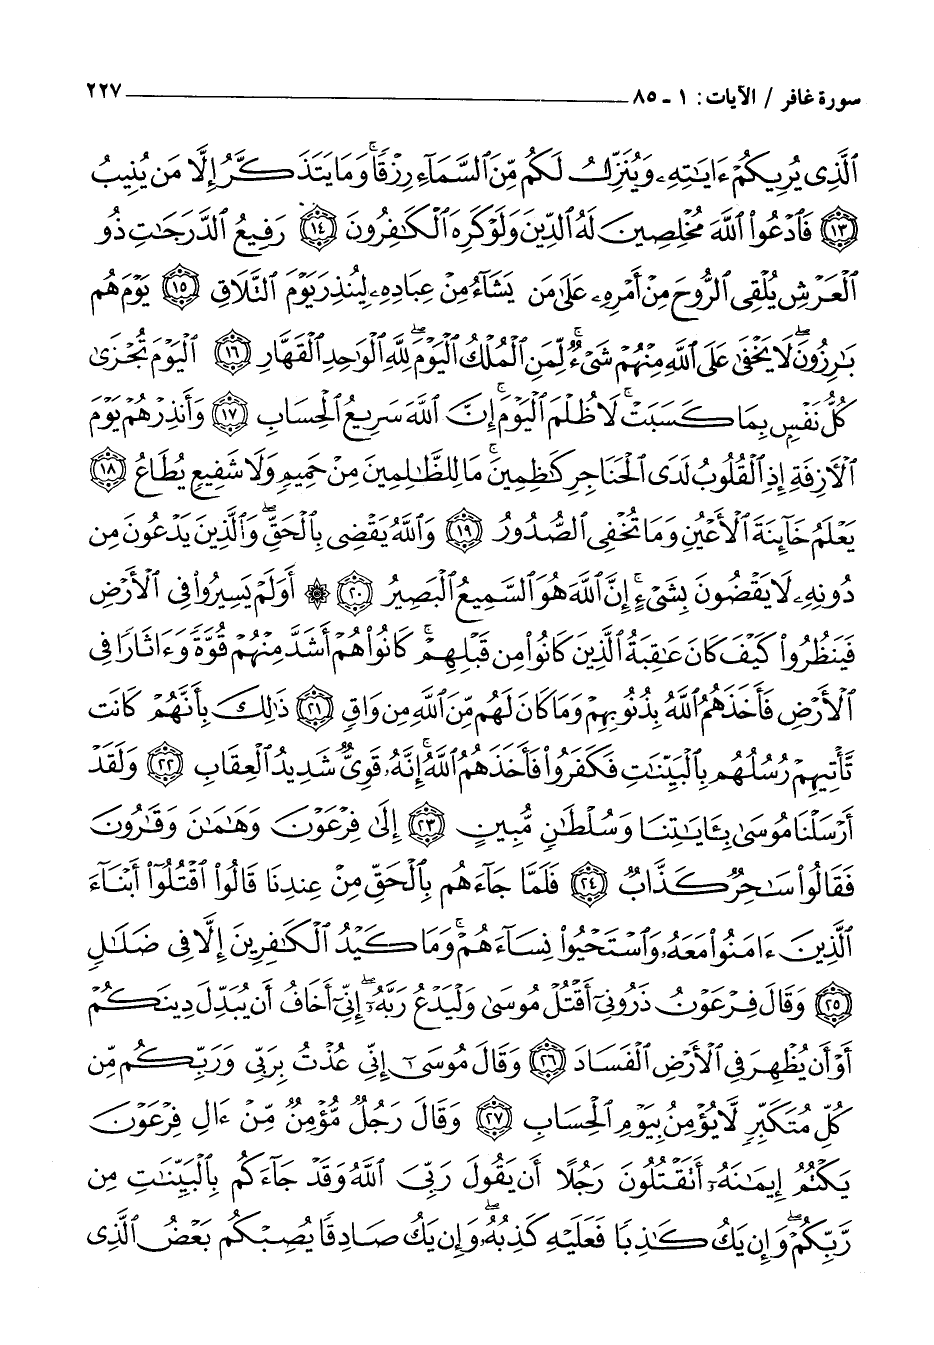 سورة غافر / الآيات: ١ - ٨٥ ٢٢٧
ٱلَّذِى يُرِيكُمْ ءَايَـٰتِهِۦ وَيُنَزِّلُ لَكُم مِّنَ ٱلسَّمَآءِ رِزْقًا ۚ وَمَا يَتَذَكَّرُ إِلَّا مَن يُنِيبُ
﴿١٣﴾ فَٱدْعُوا۟ ٱللَّهَ مُخْلِصِينَ لَهُ ٱلدِّينَ وَلَوْ كَرِهَ ٱلْكَـٰفِرُونَ ﴿١٤﴾ رَفِيعُ ٱلدَّرَجَـٰتِ ذُو
ٱلْعَرْشِ يُلْقِى ٱلرُّوحَ مِنْ أَمْرِهِۦ عَلَىٰ مَن يَشَآءُ مِنْ عِبَادِهِۦ لِيُنذِرَ يَوْمَ ٱلتَّلَاقِ ﴿١٥﴾ يَوْمَ هُم
بَـٰرِزُونَ ۖ لَا يَخْفَىٰ عَلَى ٱللَّهِ مِنْهُمْ شَىْءٌ ۚ لِّمَنِ ٱلْمُلْكُ ٱلْيَوْمَ ۖ لِلَّهِ ٱلْوَٰحِدِ ٱلْقَهَّارِ ﴿١٦﴾ ٱلْيَوْمَ تُجْزَىٰ
كُلُّ نَفْسٍۭ بِمَا كَسَبَتْ ۚ لَا ظُلْمَ ٱلْيَوْمَ ۚ إِنَّ ٱللَّهَ سَرِيعُ ٱلْحِسَابِ ﴿١٧﴾ وَأَنذِرْهُمْ يَوْمَ
ٱلْأَزِفَةِ إِذِ ٱلْقُلُوبُ لَدَى ٱلْحَنَاجِرِ كَـٰظِمِينَ ۚ مَا لِلظَّـٰلِمِينَ مِنْ حَمِيمٍ وَلَا شَفِيعٍ يُطَاعُ ﴿١٨﴾
يَعْلَمُ خَآئِنَةَ ٱلْأَعْيُنِ وَمَا تُخْفِى ٱلصُّدُورُ ﴿١٩﴾ وَٱللَّهُ يَقْضِى بِٱلْحَقِّ ۖ وَٱلَّذِينَ يَدْعُونَ مِن
دُونِهِۦ لَا يَقْضُونَ بِشَىْءٍ ۗ إِنَّ ٱللَّهَ هُوَ ٱلسَّمِيعُ ٱلْبَصِيرُ ﴿٢٠﴾ ۞ أَوَلَمْ يَسِيرُوا۟ فِى ٱلْأَرْضِ
فَيَنظُرُوا۟ كَيْفَ كَانَ عَـٰقِبَةُ ٱلَّذِينَ كَانُوا۟ مِن قَبْلِهِمْ ۚ كَانُوا۟ هُمْ أَشَدَّ مِنْهُمْ قُوَّةً وَءَاثَارًا فِى
ٱلْأَرْضِ فَأَخَذَهُمُ ٱللَّهُ بِذُنُوبِهِمْ وَمَا كَانَ لَهُم مِّنَ ٱللَّهِ مِن وَاقٍ ﴿٢١﴾ ذَٰلِكَ بِأَنَّهُمْ كَانَت
تَّأْتِيهِمْ رُسُلُهُم بِٱلْبَيِّنَـٰتِ فَكَفَرُوا۟ فَأَخَذَهُمُ ٱللَّهُ ۚ إِنَّهُۥ قَوِىٌّ شَدِيدُ ٱلْعِقَابِ ﴿٢٢﴾ وَلَقَدْ
أَرْسَلْنَا مُوسَىٰ بِـَٔايَـٰتِنَا وَسُلْطَـٰنٍ مُّبِينٍ ﴿٢٣﴾ إِلَىٰ فِرْعَوْنَ وَهَـٰمَـٰنَ وَقَـٰرُونَ
فَقَالُوا۟ سَـٰحِرٌ كَذَّابٌ ﴿٢٤﴾ فَلَمَّا جَآءَهُم بِٱلْحَقِّ مِنْ عِندِنَا قَالُوا۟ ٱقْتُلُوٓا۟ أَبْنَآءَ
ٱلَّذِينَ ءَامَنُوا۟ مَعَهُۥ وَٱسْتَحْيُوا۟ نِسَآءَهُمْ ۚ وَمَا كَيْدُ ٱلْكَـٰفِرِينَ إِلَّا فِى ضَلَـٰلٍ
﴿٢٥﴾ وَقَالَ فِرْعَوْنُ ذَرُونِىٓ أَقْتُلْ مُوسَىٰ وَلْيَدْعُ رَبَّهُۥٓ ۖ إِنِّىٓ أَخَافُ أَن يُبَدِّلَ دِينَكُمْ
أَوْ أَن يُظْهِرَ فِى ٱلْأَرْضِ ٱلْفَسَادَ ﴿٢٦﴾ وَقَالَ مُوسَىٰٓ إِنِّى عُذْتُ بِرَبِّى وَرَبِّكُم مِّن
كُلِّ مُتَكَبِّرٍ لَّا يُؤْمِنُ بِيَوْمِ ٱلْحِسَابِ ﴿٢٧﴾ وَقَالَ رَجُلٌ مُّؤْمِنٌ مِّنْ ءَالِ فِرْعَوْنَ
يَكْتُمُ إِيمَـٰنَهُۥٓ أَتَقْتُلُونَ رَجُلًا أَن يَقُولَ رَبِّىَ ٱللَّهُ وَقَدْ جَآءَكُم بِٱلْبَيِّنَـٰتِ مِن
رَّبِّكُمْ ۖ وَإِن يَكُ كَـٰذِبًا فَعَلَيْهِ كَذِبُهُۥ ۖ وَإِن يَكُ صَادِقًا يُصِبْكُم بَعْضُ ٱلَّذِى